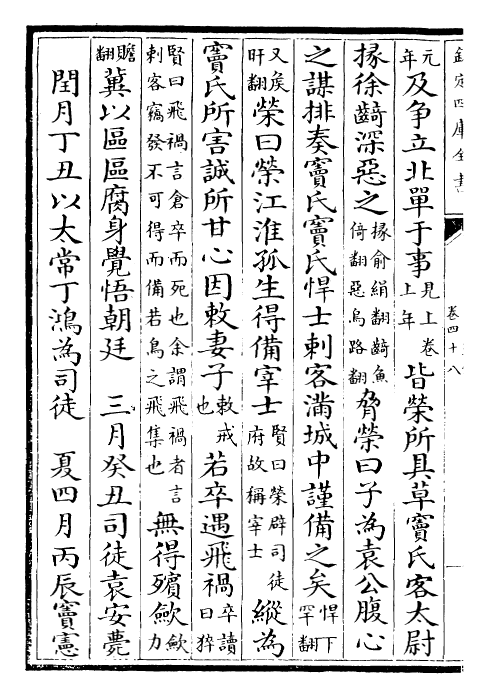 欽定四庫全書
卷四十八
元年及争立北單于事見上卷上年皆榮所具草竇氏客太尉
掾徐齮深惡之掾俞絹翻齮魚倚翻惡烏路翻脅榮曰子為袁公腹心
之謀排奏竇氏竇氏悍士刺客滿城中謹備之矣悍下罕翻
又矦旰翻榮曰榮江淮孤生得備宰士賢曰榮辟司徒府故稱宰士縱為
竇氏所害誠所甘心因敕妻子敕戒也若卒遇飛禍卒讀曰猝
賢曰飛禍言倉卒而死也余謂飛禍者言刺客竊發不可得而備若鳥之飛集也無得殯歛歛力
贍翻冀以區區腐身覺悟朝廷 三月癸丑司徒袁安薨
閏月丁丑以太常丁鴻為司徒 夏四月丙辰竇憲